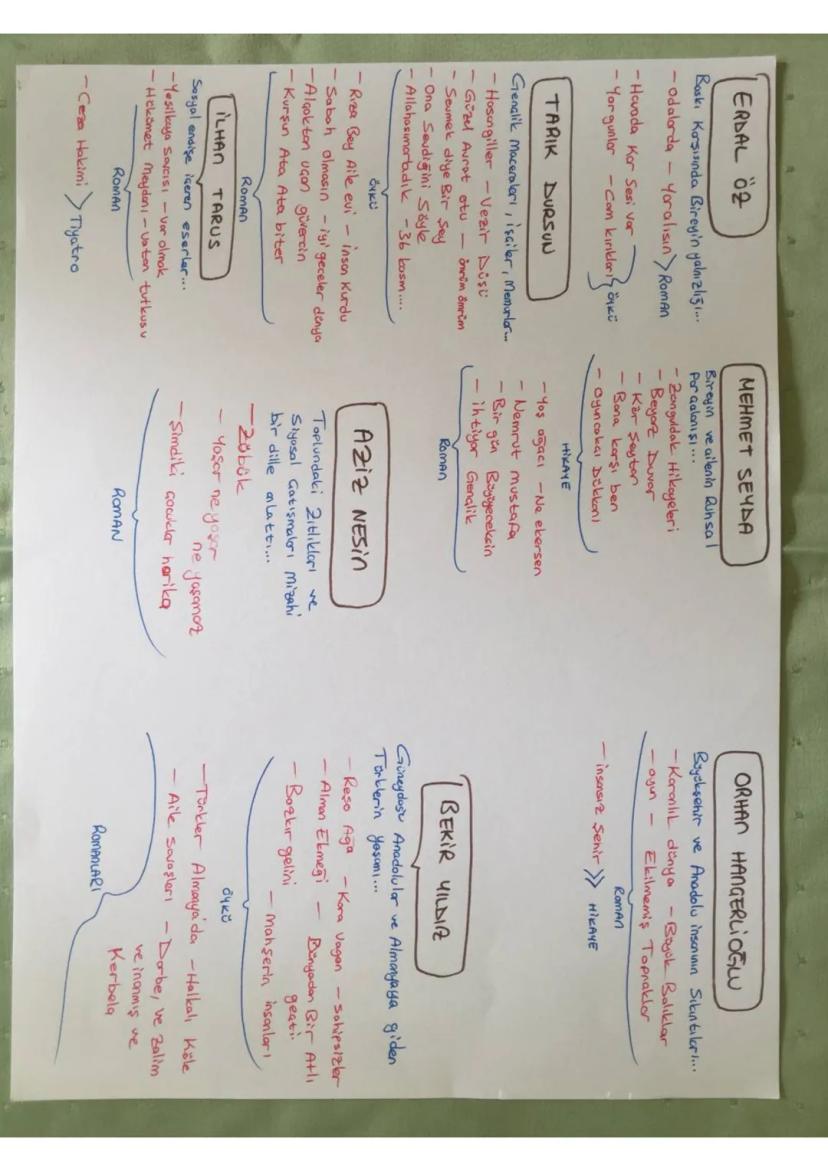 ERDAL ÖZ
Baskı Karşısında Bireyin yalnızlığı...
- Odalarda - Yaralısın > ROMAN
- Havada Kar Sesi var
- Yorgunlar - Cam kırıkları } ÖYKÜ
TARIK DURSUN
Gençlik Maceraları, işçiler, Memurlar...
- Hasangiller - Vezir Düşü
- Güzel Avrat otu - ömrüm ömrüm
- Sevmek diye Bir Şey
- Ona Sevdiğini Söyle
- Allahasmarladık - 36 kısım....
ÖYKÜ
- Rıza Bey Aile evi - İnsan Kurdu
- Sabah olmasın - iyi geceler dünya
- Alçaktan uçan güvercin
- Kurşun Ata Ata biter
ROMAN
İLHAN TARUS
Sosyal endişe içeren eserler...
- Yeşilkaya Savcısı - Var olmak
- Hükümet Meydanı - Vatan tutkusu
ROMAN
- Ceza Hakimi > Tiyatro
MEHMET SEYDA
Bireyin ve ailenin Ruhsal
Parçalanışı...
- Zonguldak Hikayeleri
- Beyaz Duvar
- Kör Şeytan
- Bana karşı ben
- Oyuncakçı Dükkanı
HİKAYE
- Yaş ağacı - Ne ekersen
- Nemrut Mustafa
- Bir gün Büyüyeceksin
- ihtiyar Gençlik
ROMAN
AZİZ NESİN
Toplundaki Zıtlıkları ve
Siyasal Çatışmaları Mizahi
bir dille anlattı...
- Zübük
- Yaşar ne yaşar
ne yaşamaz
- Şimdiki çocuklar harika
ROMAN
ORHAN HANGERLİOĞLU
Büyükşehir ve Anadolu insanının Sıkıntıları...
- Karanlık dünya - Büyük Balıklar
- oyun - Ekilmemiş Topraklar
ROMAN
- insansız Şehir >> HİKAYE
BEKİR YILDIZ
Güneydoğu Anadolular ve Almanyaya giden
Türklerin yaşamı...
- Reşo Ağa - Kara Vagon - sahipsizler
- Alman Ekmeği - Dünyadan Bir Atlı
geçti
- Bozkır gelini - Mahşerin insanları
ÖYKÜ
- Türkler Almanya'da - Halkalı Köle
- Aile savaşları - Darbe, ve Zalim
ve inanmış ve
Kerbela
ROMANLARI